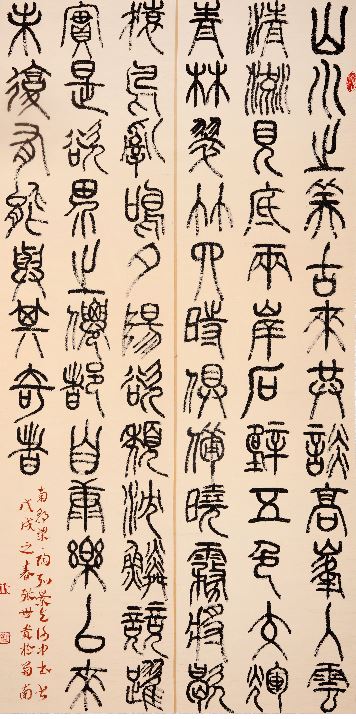 山川之美古來共談高峯入雲
清流見底兩岸石壁五色交輝
青林翠竹四時俱備曉霧將歇
猨鳥亂鳴夕陽欲頹沈鱗競躍
實是欲界之僊都自康樂以來
未復有能與其奇者
南朝梁陶弘景答謝中書書
戊戌之春